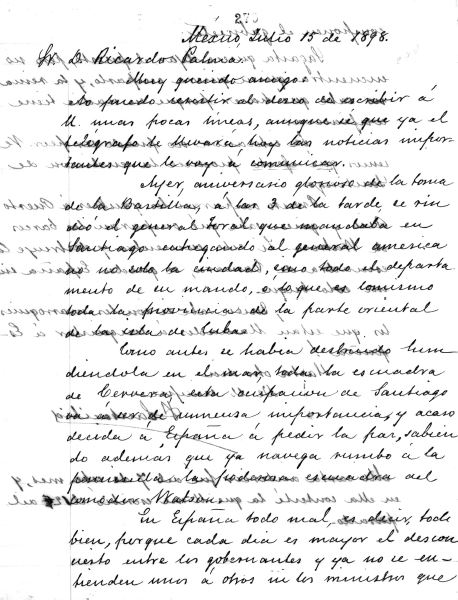 273
Mexico Julio 15 de 1898.
Sr. D. Ricardo Palma
Muy querido amigo:
No puedo resistir al deseo de escribir á
U. unas pocas líneas, aunque se que ya el
telegrafo te llevará hoy las noticias impor-
tantes que le voy á comunicar.
Ayer, aniversario glorioso de la toma
de la Bastilla, a las 3 de la tarde, se rin
dió el general Toral que mandaba en
Santiago entregando al general america
no no solo la ciudad, sino todo el departa
mento de su mando, o lo que es lo mismo
toda la provincia de la parte oriental
de la isla de Cuba.
Como antes se habia destruido hun
diendola en el mar, toda la escuadra
de Cervera, esta ocupacion de Santiago
va á ser de inmensa importancia, y acaso
decida á España á pedir la paz, sabien
do ademas que ya navega rumbo á la
peninsula la poderosa escuadra del
comodoro Watson.
En España todo mal, es decir, todo
bien, porque cada dia es mayor el descon
cierto entre los gobernantes y ya no se en-
tienden unos á otros ni los ministros que